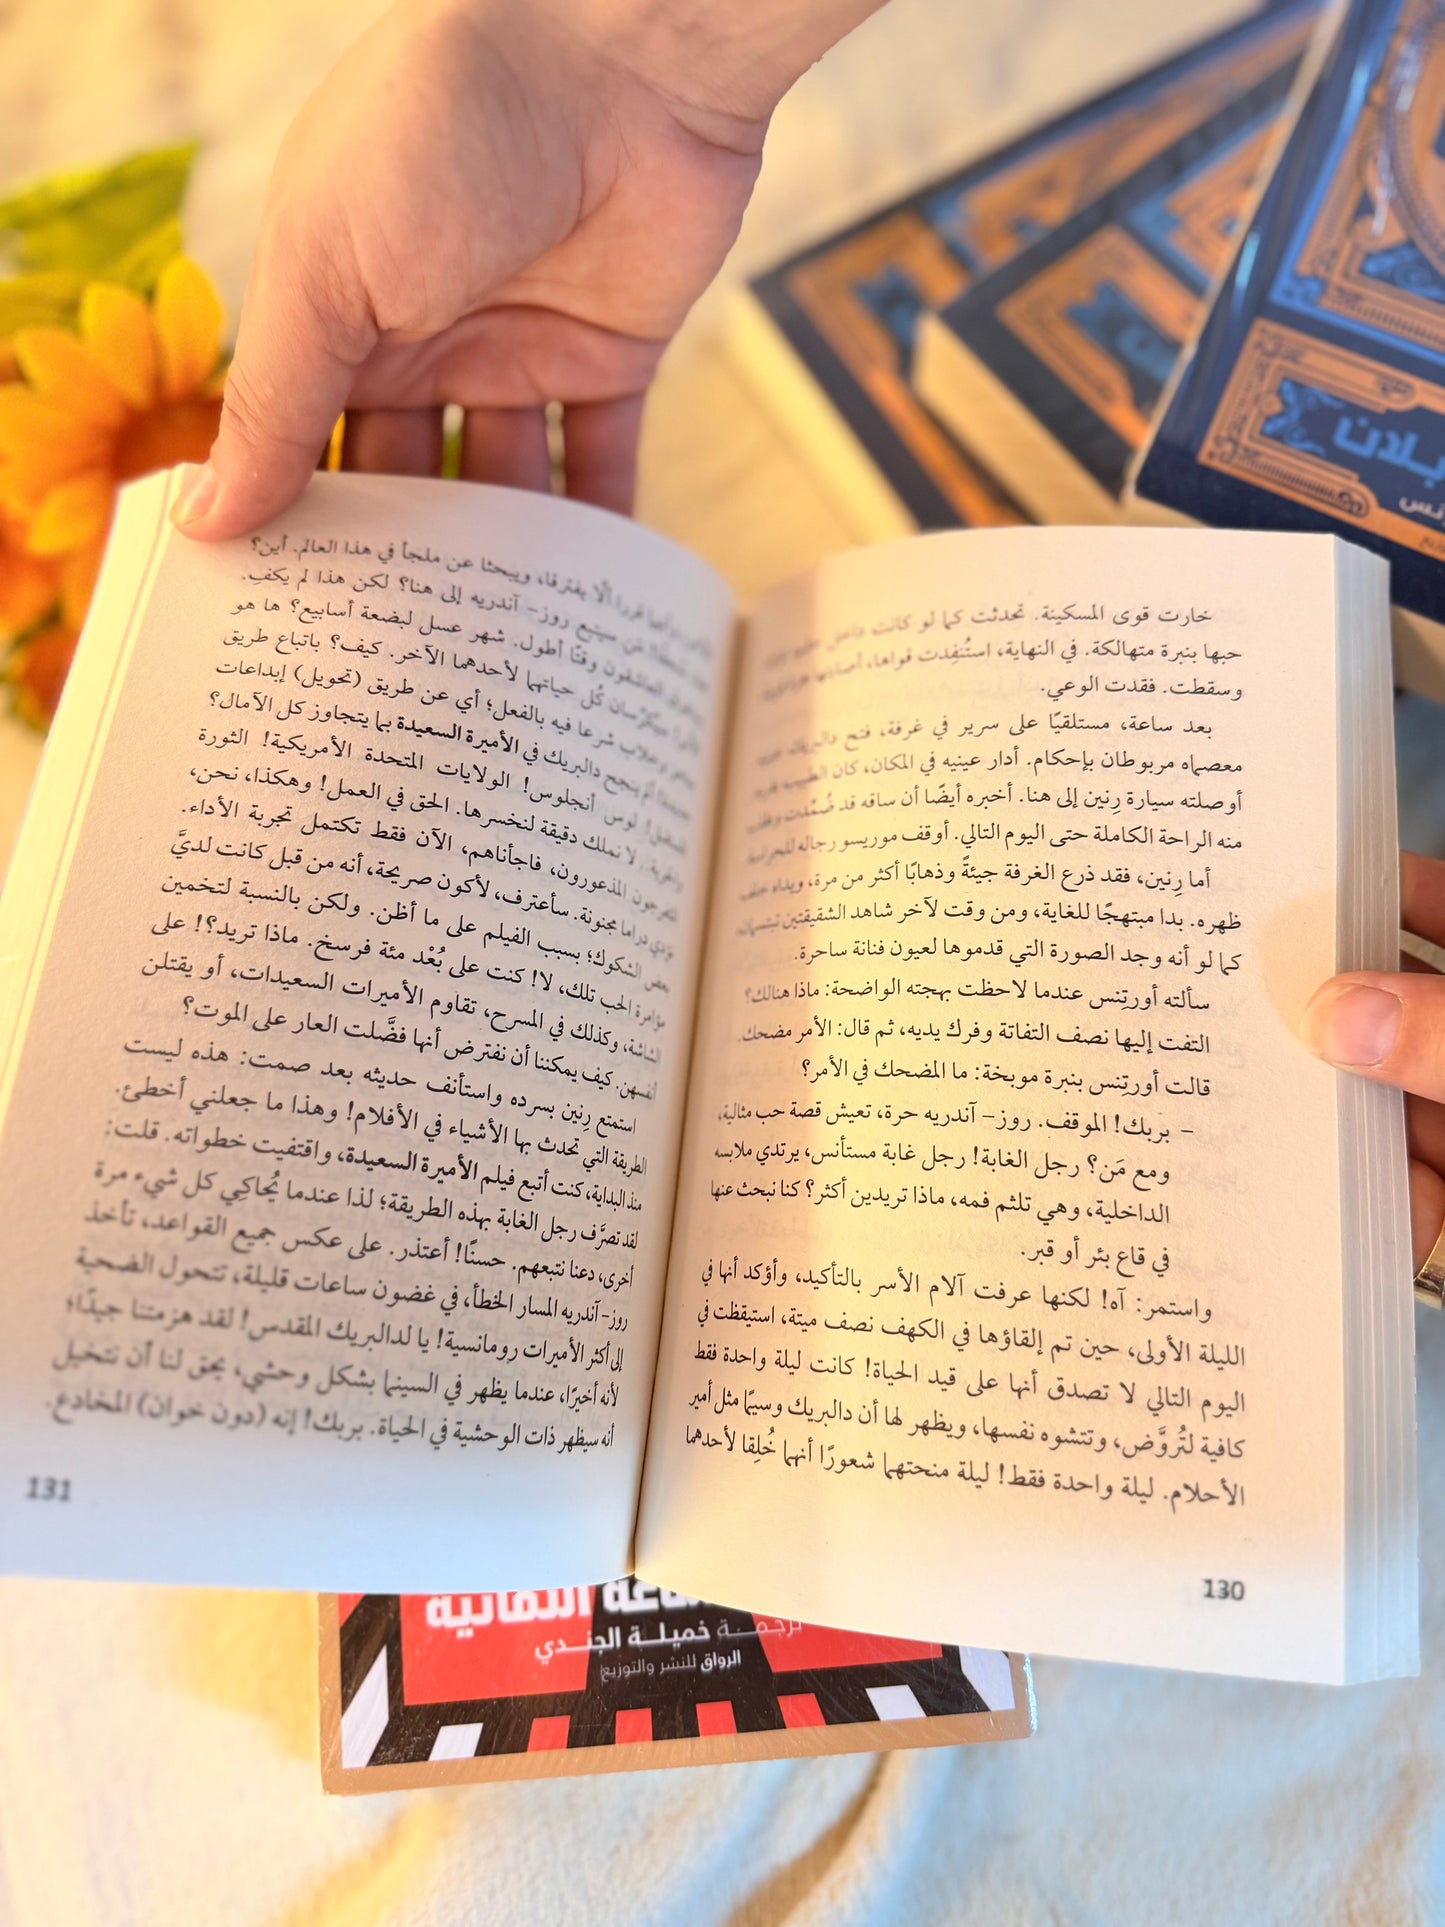 خارت قوى المسكينة. تحدثت كما لو كانت
حبها بنبرة متهالكة. في النهاية، استُنفِدت قواها،
وسقطت. فقدت الوعي.
بعد ساعة، مستلقيًا على سرير في غرفة، فتح دالبريك
معصماه مربوطان بإحكام. أدار عينيه في المكان، كان الطبيب
أوصلته سيارة رِنين إلى هنا. أخبره أيضًا أن ساقه قد ضُمِّدت
منه الراحة الكاملة حتى اليوم التالي. أوقف موريسو رجاله للحراسة
أما رِنين، فقد ذرع الغرفة جيئةً وذهابًا أكثر من مرة، ويداه خلف
ظهره. بدا مبتهجًا للغاية، ومن وقت لآخر شاهد الشقيقتين تبتسمان،
كما لو أنه وجد الصورة التي قدموها لعيون فنانة ساحرة.
سألته أورتِنس عندما لاحظت بهجته الواضحة: ماذا هنالك؟
التفت إليها نصف التفاتة وفرك يديه، ثم قال: الأمر مضحك.
قالت أورتِنس بنبرة موبخة: ما المضحك في الأمر؟
– بربك! الموقف. روز– آندريه حرة، تعيش قصة حب مثالية،
ومع مَن؟ رجل الغابة! رجل غابة مستأنس، يرتدي ملابسه
الداخلية، وهي تلثم فمه، ماذا تريدين أكثر؟ كنا نبحث عنها
في قاع بئر أو قبر.
واستمر: آه! لكنها عرفت آلام الأسر بالتأكيد، وأؤكد أنها في
الليلة الأولى، حين تم إلقاؤها في الكهف نصف ميتة، استيقظت في
اليوم التالي لا تصدق أنها على قيد الحياة! كانت ليلة واحدة فقط
كافية لتُروَّض، وتتشوه نفسها، ويظهر لها أن دالبريك وسيمًا مثل أمير
الأحلام. ليلة واحدة فقط! ليلة منحتهما شعورًا أنهما خُلِقا لأحدهما
130
قررا ألَّا يفترقا، ويبحثا عن ملجأ في هذا العالم. أين؟
مَن سيتبع روز– آندريه إلى هنا؟ لكن هذا لم يكفِ.
العاشقون وقتًا أطول. شهر عسل لبضعة أسابيع؟ ها هو
سيكرِّسان كُل حياتهما لأحدهما الآخر. كيف؟ باتباع طريق
وخلاب شرعا فيه بالفعل؛ أي عن طريق (تحويل) إبداعات
ألم ينجح دالبريك في الأميرة السعيدة بما يتجاوز كل الآمال؟
لوس أنجلوس! الولايات المتحدة الأمريكية! الثورة
لا نملك دقيقة لنخسرها. الحق في العمل! وهكذا، نحن،
المتفرجون المذعورون، فاجأناهم، الآن فقط تكتمل تجربة الأداء.
تؤدي دراما مجنونة. سأعترف، لأكون صريحة، أنه من قبل كانت لديَّ
بعض الشكوك؛ بسبب الفيلم على ما أظن. ولكن بالنسبة لتخمين
مؤامرة الحب تلك، لا! كنت على بُعْد مئة فرسخ. ماذا تريد؟! على
الشاشة، وكذلك في المسرح، تقاوم الأميرات السعيدات، أو يقتلن
أنفسهن. كيف يمكننا أن نفترض أنها فضَّلت العار على الموت؟
استمتع رِنين بسرده واستأنف حديثه بعد صمت: هذه ليست
الطريقة التي تحدث بها الأشياء في الأفلام! وهذا ما جعلني أخطئ.
منذ البداية، كنت أتبع فيلم الأميرة السعيدة، واقتفيت خطواته. قلت:
لقد تصرَّف رجل الغابة بهذه الطريقة؛ لذا عندما يُحاكِي كل شيء مرة
أخرى، دعنا نتبعهم. حسنًا! أعتذر. على عكس جميع القواعد، تأخذ
روز– آندريه المسار الخطأ، في غضون ساعات قليلة، تتحول الضحية
إلى أكثر الأميرات رومانسية! يا لدالبريك المقدس! لقد هزمتنا جيدًا؛
لأنه أخيرًا، عندما يظهر في السينما بشكل وحشي، يحق لنا أن نتخيل
أنه سيظهر ذات الوحشية في الحياة. بربك! إنه (دون خوان) المخادع.
131
الثمانية
ترجمة خميلة الجندي
الرواق للنشر والتوزيع